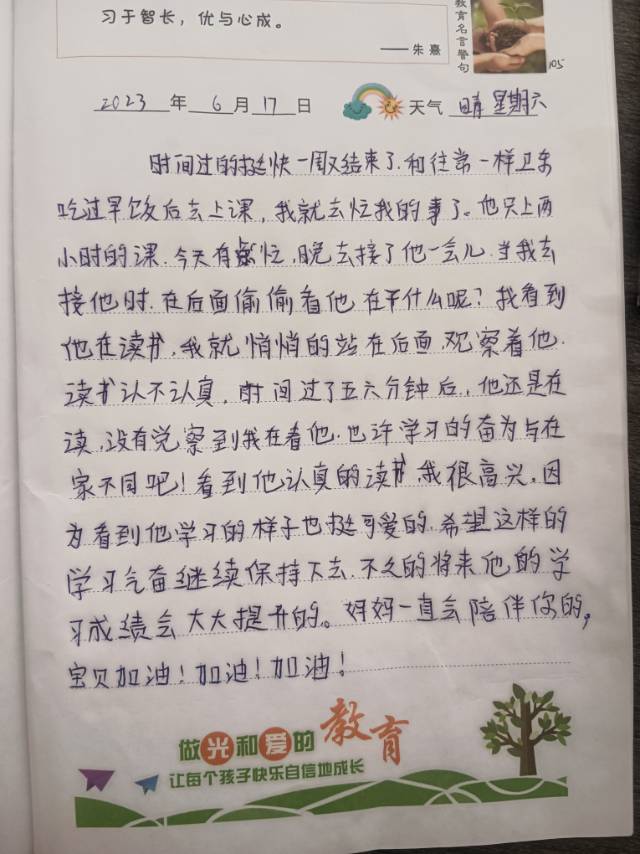 习于智长，优与心成。
——朱熹
教育名言警句
105
2023年6月17日 天气 晴 星期六
时间过的挺快一周又结束了.和往常一样卫东
吃过早饭后去上课，我就去忙我的事了。他只上两
小时的课.今天有点忙，晚去接了他一会儿.当我去
接他时.在后面偷偷看他在干什么呢？我看到
他在读书，我就悄悄的站在后面观察着他.
读书认不认真，时间过了五六分钟后，他还是在
读，没有觉察到我在看他.也许学习的奋为与在
家不同吧！看到他认真的读书，我很高兴，因
为看到他学习的样子也挺可爱的.希望这样的
学习气奋继续保持下去.不久的将来他的学
习成绩会大大提升的。妈妈一直会陪伴你的，
宝贝加油！加油！加油！
做光和爱的教育
让每个孩子快乐自信地成长